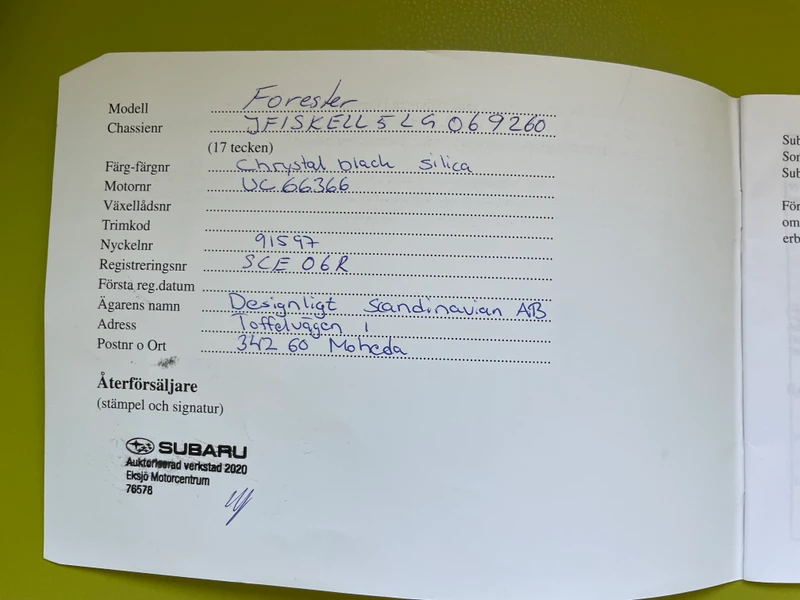 Modell Forester
Chassienr JF1SKELL5LG069260
(17 tecken)
Färg-färgnr Chrystal black silica
Motornr UC66366
Växellådsnr
Trimkod
Nyckelnr 91597
Registreringsnr SCE 06R
Första reg.datum
Ägarens namn Designligt Scandinavian AB
Adress Toffelvägen 1
Postnr o Ort 342 60 Moheda
Återförsäljare
(stämpel och signatur)
SUBARU
Auktoriserad verkstad 2020
Eksjö Motorcentrum
76578
Sub
Sor
Sub
För
om
erb